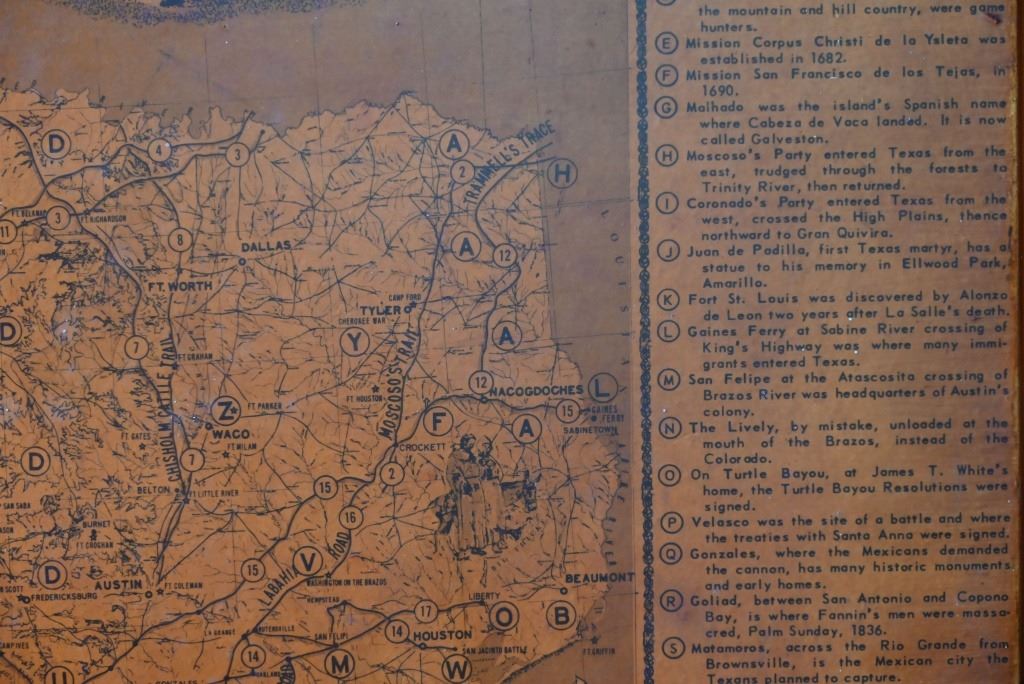 D
A
A
A
A
H
TRAMMELL'S TRACE
LOUISIANA
4
3
2
12
3
FT. BELKNAP
FT. RICHARDSON
11
8
DALLAS
FT. WORTH
D
7
CAMP FORD
TYLER
CHEROKEE WAR
Y
MOSCOSO'S TRAIT
CHISHOLM CATTLE TRAIL
FT GRAHAM
FT. HOUSTON
12
NACOGDOCHES
L
15
GAINES FERRY
SABINETOWN
Z
FT PARKER
WACO
F
CROCKETT
FT GATES
FT. MILAM
D
7
2
BELTON
FT LITTLE RIVER
15
SAN SABA
16
BURNET
FT CROGHAN
V
LABAHIA ROAD
D
15
WASHINGTON ON THE BRAZOS
AUSTIN
FT COLEMAN
SCOTT
FREDERICKSBURG
HEMPSTEAD
BEAUMONT
LIBERTY
17
O
B
LA GRANGE
SAN FELIPE
14
HOUSTON
SAN JACINTO BATTLE
14
M
W
FT. GRIFFIN
U
GONZALES
the mountain and hill country, were game
hunters.
E Mission Corpus Christi de la Ysleta was
established in 1682.
F Mission San Francisco de los Tejas, in
1690.
G Malhado was the island's Spanish name
where Cabeza de Vaca landed. It is now
called Galveston.
H Moscoso's Party entered Texas from the
east, trudged through the forests to
Trinity River, then returned.
I Coronado's Party entered Texas from the
west, crossed the High Plains, thence
northward to Gran Quivira.
J Juan de Padilla, first Texas martyr, has a
statue to his memory in Ellwood Park,
Amarillo.
K Fort St. Louis was discovered by Alonzo
de Leon two years after La Salle's death.
L Gaines Ferry at Sabine River crossing of
King's Highway was where many immi-
grants entered Texas.
M San Felipe at the Atascosita crossing of
Brazos River was headquarters of Austin's
colony.
N The Lively, by mistake, unloaded at the
mouth of the Brazos, instead of the
Colorado.
O On Turtle Bayou, at James T. White's
home, the Turtle Bayou Resolutions were
signed.
P Velasco was the site of a battle and where
the treaties with Santa Anna were signed.
Q Gonzales, where the Mexicans demanded
the cannon, has many historic monuments
and early homes.
R Goliad, between San Antonio and Copono
Bay, is where Fannin's men were massa-
cred, Palm Sunday, 1836.
S Matamoros, across the Rio Grande from
Brownsville, is the Mexican city the
Texans planned to capture.